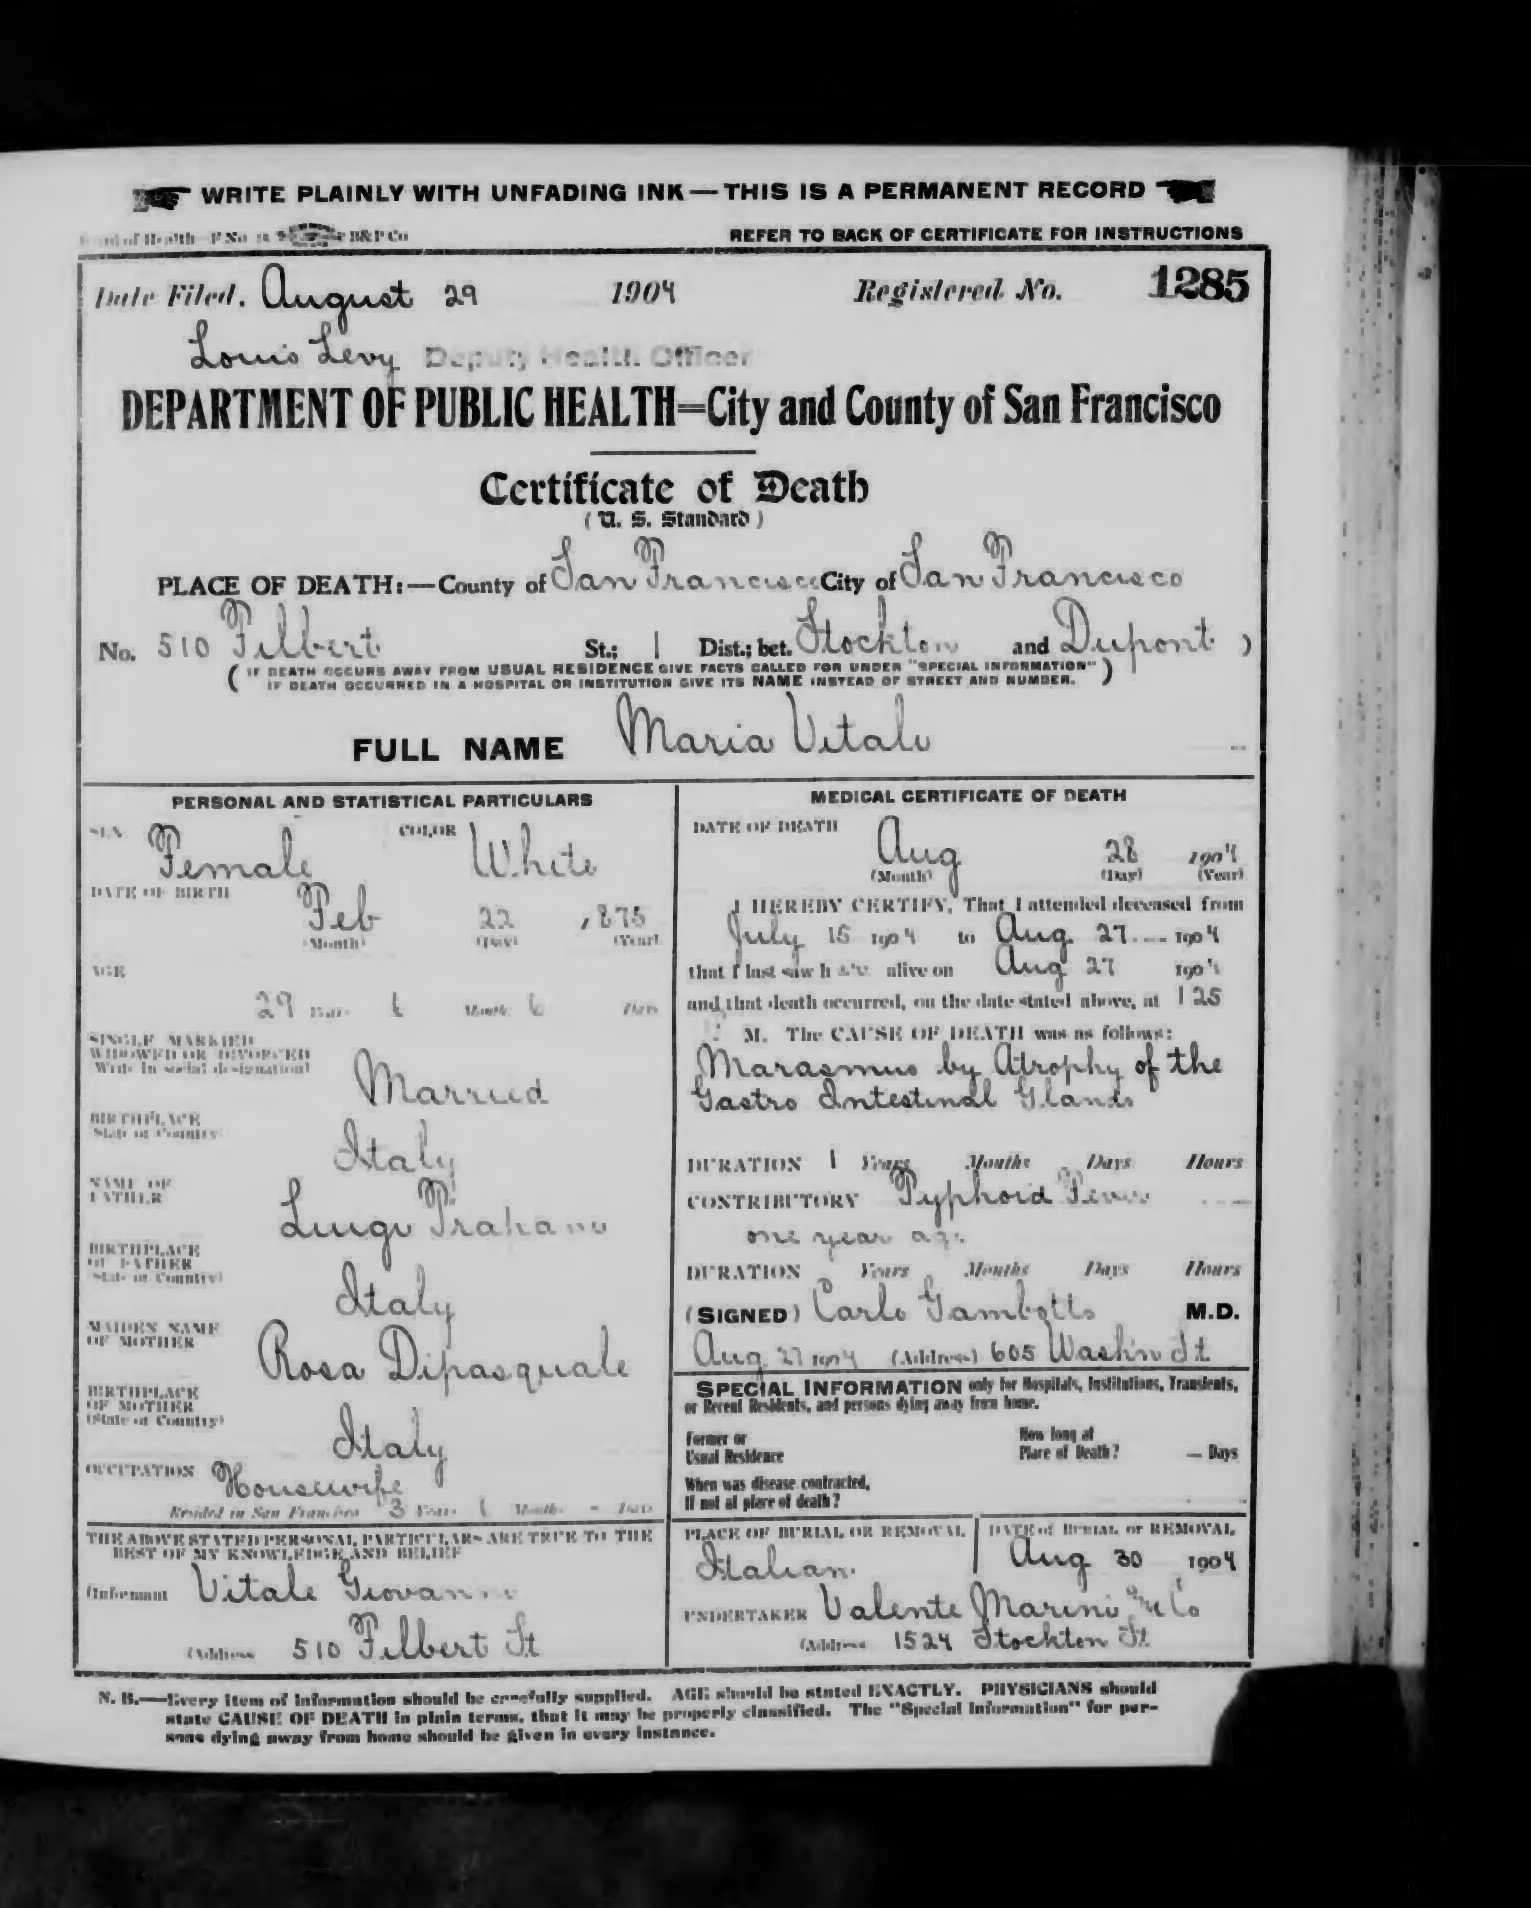 WRITE PLAINLY WITH UNFADING INK—THIS IS A PERMANENT RECORD
of Health B&P Co REFER TO BACK OF CERTIFICATE FOR INSTRUCTIONS
Date Filed. August 29 1904 Registered No. 1285
Louis Levy Deputy Health Officer
DEPARTMENT OF PUBLIC HEALTH=City and County of San Francisco
Certificate of Death
(U. S. Standard)
PLACE OF DEATH:—County of San Francisco City of San Francisco
No. 510 Filbert St.; 1 Dist.; bet. Stockton and Dupont )
( IF DEATH OCCURS AWAY FROM USUAL RESIDENCE GIVE FACTS CALLED FOR UNDER "SPECIAL INFORMATION" )
IF DEATH OCCURRED IN A HOSPITAL OR INSTITUTION GIVE ITS NAME INSTEAD OF STREET AND NUMBER.
FULL NAME Maria Vitale
PERSONAL AND STATISTICAL PARTICULARS
SEX Female COLOR White
DATE OF BIRTH Feb 22 1875
(Month) (Day) (Year)
AGE
29 Years 6 Months 6 Days
SINGLE MARRIED
WIDOWED OR DIVORCED
(Write in social designation)
Married
BIRTHPLACE
(State or Country)
Italy
NAME OF
FATHER
Luigi
BIRTHPLACE
OF FATHER
(State or Country)
Italy
MAIDEN NAME
OF MOTHER
Rosa Dipasquale
BIRTHPLACE
OF MOTHER
(State or Country)
Italy
OCCUPATION Housewife
Resided in San Francisco 3 Years Months - Days
THE ABOVE STATED PERSONAL PARTICULARS ARE TRUE TO THE
BEST OF MY KNOWLEDGE AND BELIEF
(Informant Vitale Giovanni
(Address 510 Filbert St
MEDICAL CERTIFICATE OF DEATH
DATE OF DEATH Aug 28 1904
(Month) (Day) (Year)
I HEREBY CERTIFY, That I attended deceased from
July 15 1904 to Aug 27 1904
that I last saw h er alive on Aug 27 1904
and that death occurred, on the date stated above, at 1 25
M. The CAUSE OF DEATH was as follows:
Marasmus by Atrophy of the
Gastro Intestinal Glands
DURATION 1 Years Months Days Hours
CONTRIBUTORY Typhoid Fever
one year ago
DURATION Years Months Days Hours
(SIGNED) Carlo Gambotto M.D.
Aug 27 1904 (Address) 605 Washn St
SPECIAL INFORMATION only for Hospitals, Institutions, Transients,
or Recent Residents, and persons dying away from home.
Former or
Usual Residence
How long at
Place of Death? — Days
When was disease contracted,
If not at place of death?
PLACE OF BURIAL OR REMOVAL
Italian
DATE of BURIAL or REMOVAL
Aug 30 1904
UNDERTAKER Valente Marini & Co
(Address 1524 Stockton St
N. B.—Every item of information should be carefully supplied. AGE should be stated EXACTLY. PHYSICIANS should
state CAUSE OF DEATH in plain terms, that it may be properly classified. The "Special Information" for per-
sons dying away from home should be given in every instance.